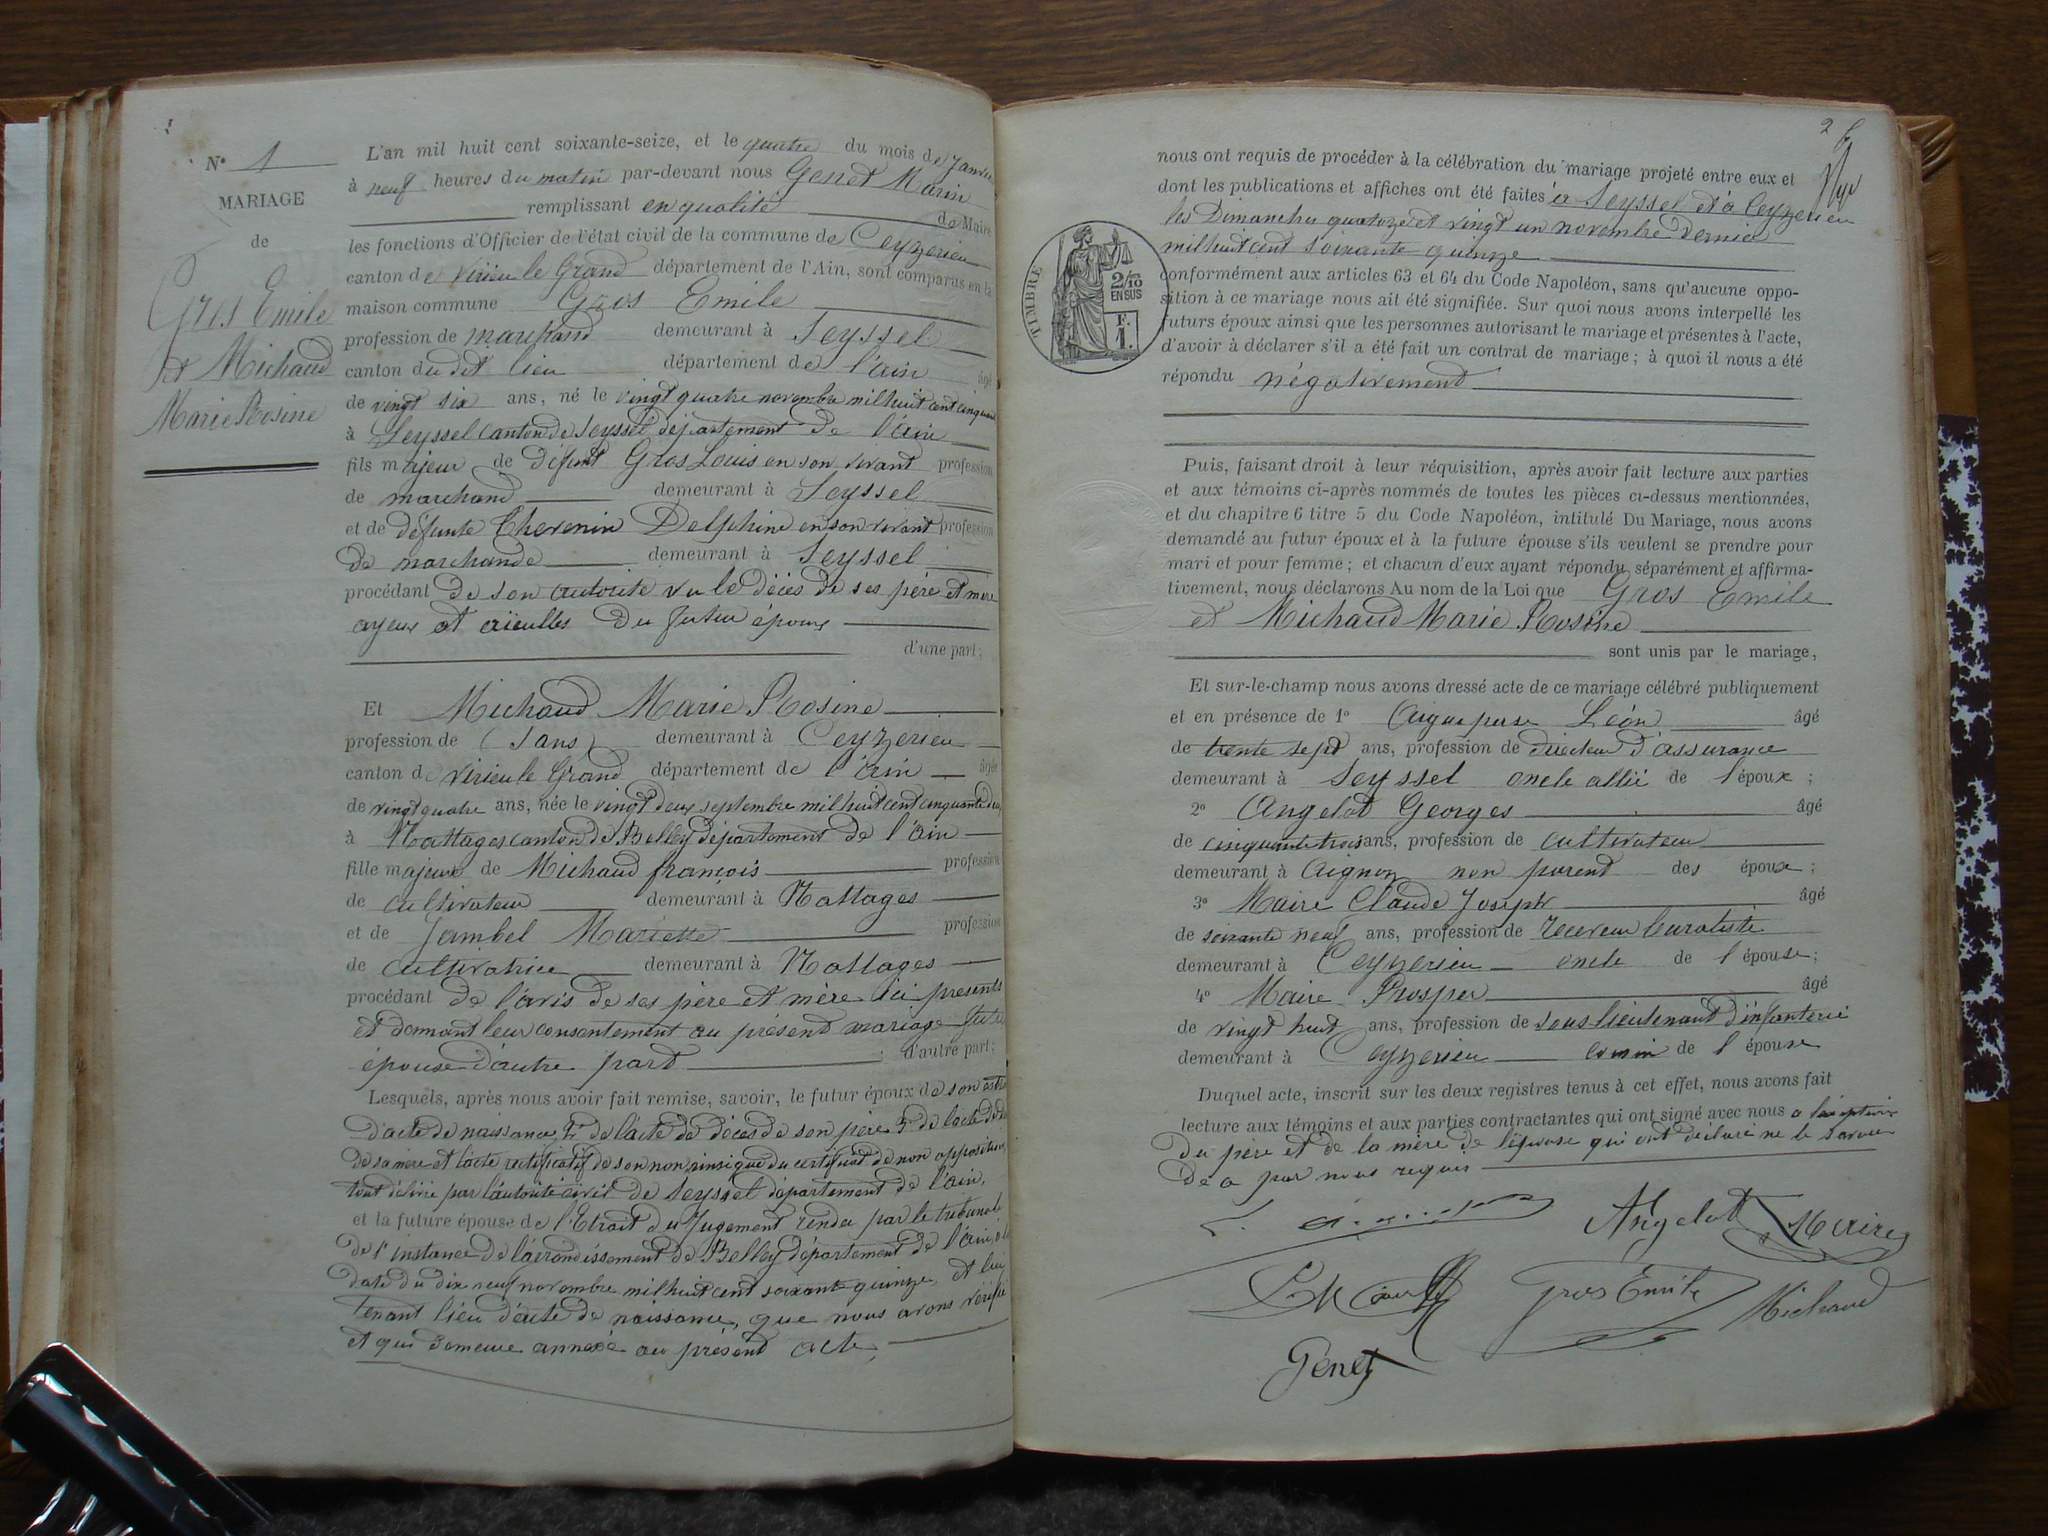 N° 1
MARIAGE
de
Gros Emile
et Michaud
Marie Rosine
L'an mil huit cent soixante-seize, et le quatre du mois de Janvier
à neuf heures du matin par-devant nous Genet Marin
remplissant en qualité de Maire
les fonctions d'Officier de l'état civil de la commune de Ceyzerieu
canton de Virieu le Grand département de l'Ain, sont comparus en la
maison commune Gros Emile
profession de marchand demeurant à Seyssel
canton du dit lieu département de l'ain âgé
de vingt six ans, né le vingt quatre novembre mil huit cent cinquante
à Seyssel canton de Seyssel département de l'ain
fils majeur de défunt Gros Louis en son vivant profession
de marchand demeurant à Seyssel
et de défunte Thevenin Delphine en son vivant profession
de marchande demeurant à Seyssel
procédant de son autorité vu le décès de ses père et mère
ayeux et aïeulles du futur époux
d'une part;
Et Michaud Marie Rosine
profession de (sans) demeurant à Ceyzerieu
canton de Virieu le Grand département de l'ain âgée
de vingt quatre ans, née le vingt deux septembre mil huit cent cinquante deux
à Nattages canton de Belley département de l'ain
fille majeure de Michaud françois profession
de cultivateur demeurant à Nattages
et de Jambel Mariette profession
de cultivatrice demeurant à Nattages
procédant de l'avis de ses père et mère ici présents
et donnant leur consentement au présent mariage future
épouse d'autre part ; d'autre part;
Lesquels, après nous avoir fait remise, savoir, le futur époux de son extrait
d'acte de naissance, 2° de l'acte de décès de son père 3° de l'acte de décès
de sa mère et l'acte rectificatif de son nom, ainsi que du certificat de non opposition
tout délivré par l'autorité civil de Seyssel département de l'ain,
et la future épouse de l'Etrait du Jugement rendu par le tribunal
de 1e instance de l'arrondissement de Belley département de l'ain, à la
date du dix neuf novembre mil huit cent soixante quinze, et lui
tenant lieu d'acte de naissance, que nous avons vérifié
et qui demeure annexé au présent acte,
2
nous ont requis de procéder à la célébration du mariage projeté entre eux et
dont les publications et affiches ont été faites à Seyssel et à Ceyzerieu
les Dimanches quatorze et vingt un novembre dernier
mil huit cent soixante quinze
TIMBRE
2/10
EN SUS
F.
1.
conformément aux articles 63 et 64 du Code Napoléon, sans qu'aucune oppo-
sition à ce mariage nous ait été signifiée. Sur quoi nous avons interpellé les
futurs époux ainsi que les personnes autorisant le mariage et présentes à l'acte,
d'avoir à déclarer s'il a été fait un contrat de mariage; à quoi il nous a été
répondu négativement
Puis, faisant droit à leur réquisition, après avoir fait lecture aux parties
et aux témoins ci-après nommés de toutes les pièces ci-dessus mentionnées,
et du chapitre 6 titre 5 du Code Napoléon, intitulé Du Mariage, nous avons
demandé au futur époux et à la future épouse s'ils veulent se prendre pour
mari et pour femme; et chacun d'eux ayant répondu séparément et affirma-
tivement, nous déclarons Au nom de la Loi que Gros Emile
et Michaud Marie Rosine
sont unis par le mariage,
Et sur-le-champ nous avons dressé acte de ce mariage célébré publiquement
et en présence de 1° Aigueperse Léon âgé
de trente sept ans, profession de directeur d'assurance
demeurant à Seyssel oncle allié de l'époux;
2° Angelot Georges âgé
de cinquante trois ans, profession de cultivateur
demeurant à Aignoz non parent des époux;
3° Maire Claude Joseph âgé
de soixante neuf ans, profession de receveur buraliste
demeurant à Ceyzerieu oncle de l'épouse;
4° Maire Prosper âgé
de vingt huit ans, profession de sous lieutenant d'infanterie
demeurant à Ceyzerieu cousin de l'épouse
Duquel acte, inscrit sur les deux registres tenus à cet effet, nous avons fait
lecture aux témoins et aux parties contractantes qui ont signé avec nous a l'exception
du père et de la mère de l'épouse qui ont déclaré ne le savoir
de a par nous requis
Angelot Maire
Gros Emile Michaud
Genet